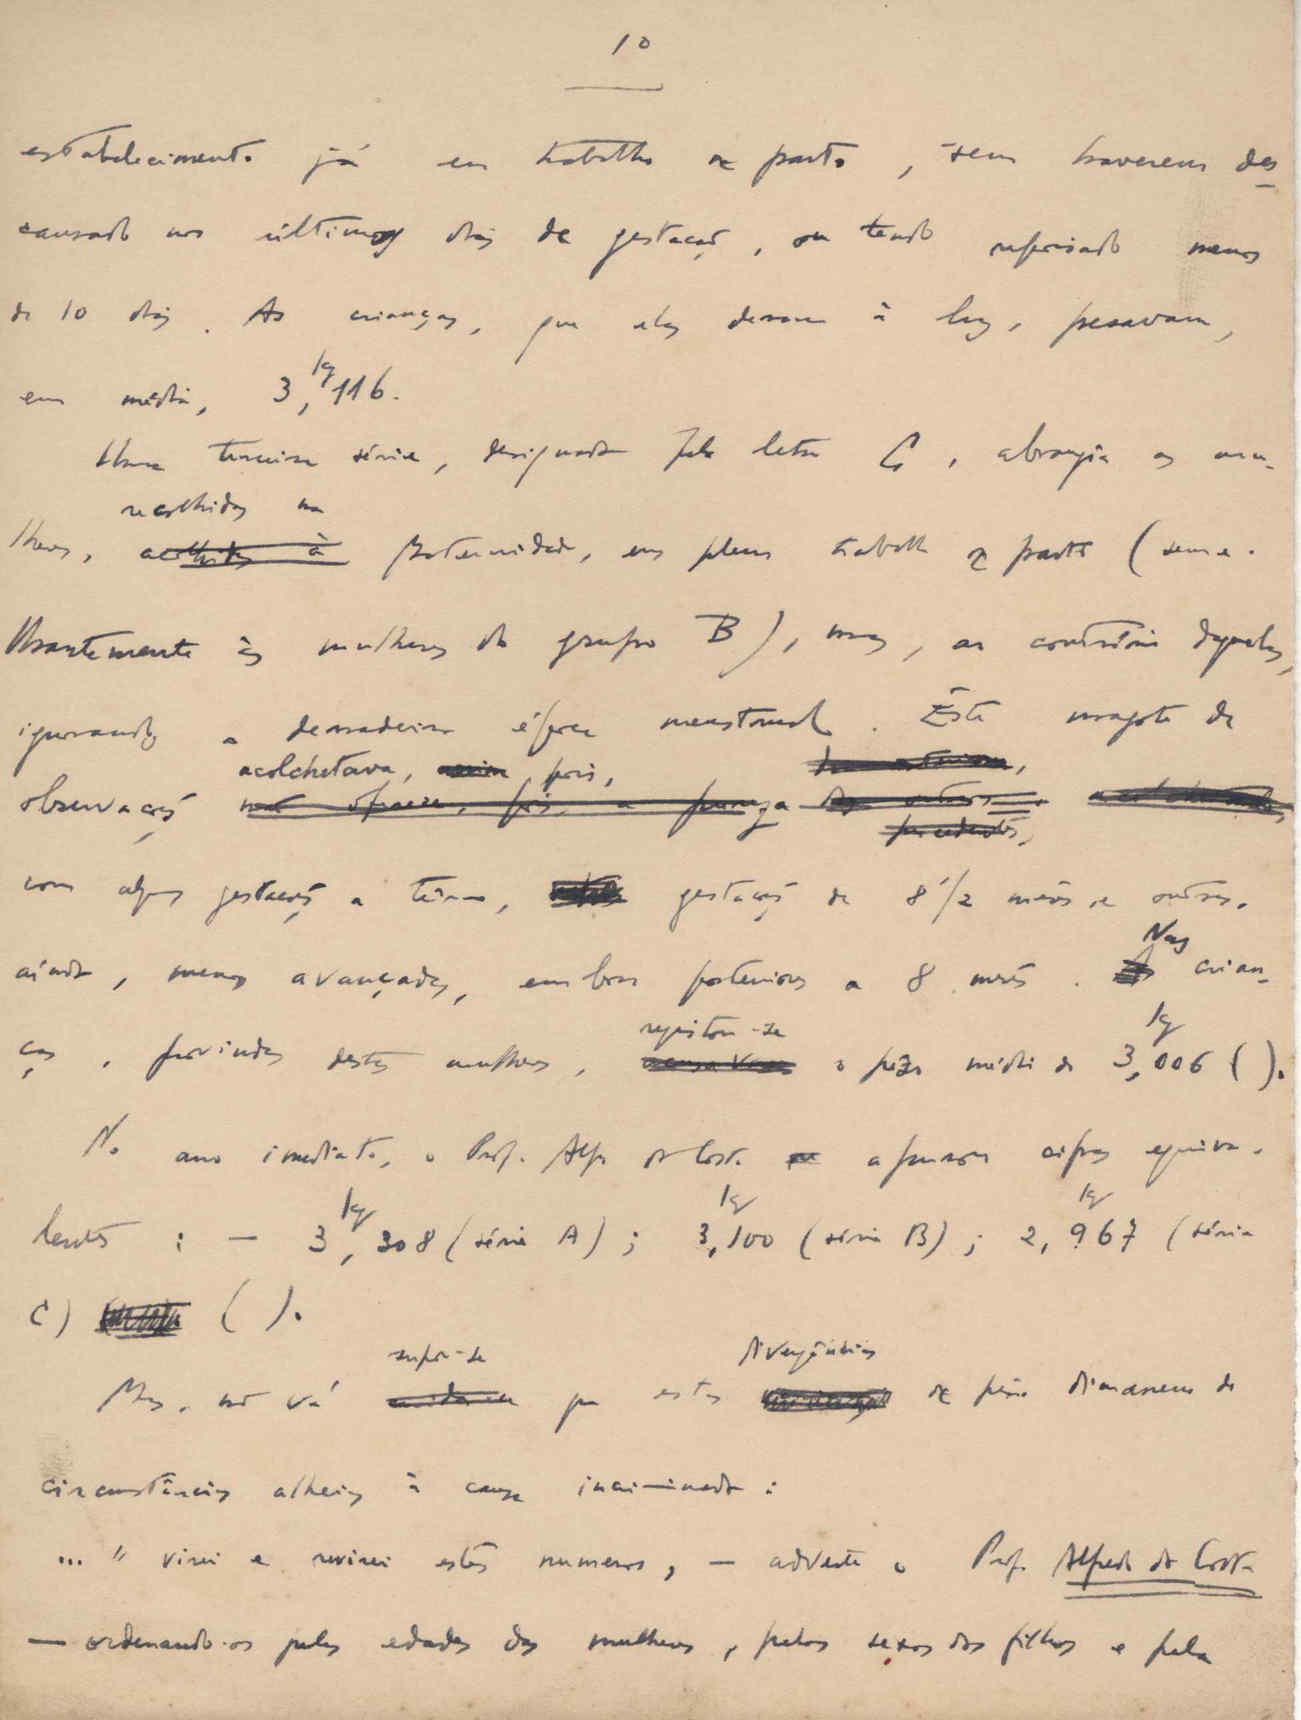 10
estabelecimento já em trabalho de parto, sem haverem des-
cansado nos últimos dias de gestação, ou tendo repousado menos
de 10 dias. As crianças, que elas deram à luz, pesavam,
em média, 3,kg116.
Uma terceira série, designada pela letra C, abrangia as mu-
recolhidas na
lheres, acolhidas à Maternidade, em pleno trabalho de parto (seme-
lhantemente às mulheres do grupo B), mas, ao contrário daquelas,
ignorando a derradeira época menstrual. Êste magote de
acolchetava, pois,
observações
com algumas gestações a têrmo, gestações de 8 1/2 mêses e outras,
ainda, menos avançadas, embora posteriores a 8 mêses. Nas crian-
registou-se
ças, provindas destas mulheres, o pêso médio de 3,kg006 ( ).
No ano imediato, o Prof. Alfredo da Costa apurou cifras equiva-
lentes : — 3,kg308 (série A) ; 3,kg100 (série B) ; 2,kg967 (série
C) ( ).
supôr-se divergências
Mas, não vá que estas de pêso dimanem de
circunstâncias alheias à causa incriminada :
... " virei e revirei estes numeros, — adverte o Prof. Alfredo da Costa
— ordenando-os pelas edades das mulheres, pelos sexos dos filhos e pela